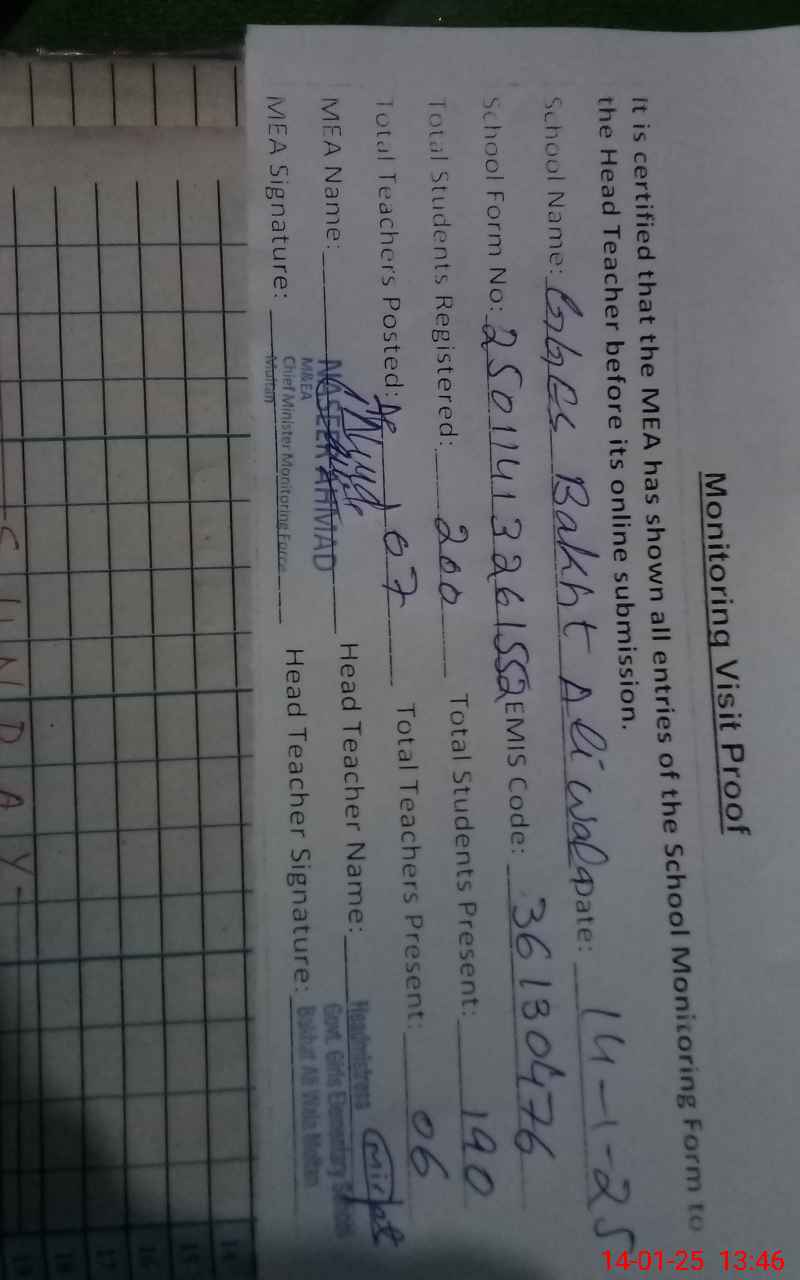 Monitoring Visit Proof
It is certified that the MEA has shown all entries of the School Monitoring Form to
the Head Teacher before its online submission.
School Name: GGES Bakht Ali wala Date: 14-1-25
School Form No: 25011413261552 EMIS Code: 36130476
Total Students Registered: 200 Total Students Present: 190
Total Teachers Posted: 07 Total Teachers Present: 06
MEA Name: NASEER AHMAD Head Teacher Name: Headmistress
M&EA
Chief Minister Monitoring Force
Multan
Govt. Girls Elementary School
Bakhat Ali Wala Multan
MEA Signature: Head Teacher Signature:
SUNDAY
14
15
16
17
14-01-25 13:46